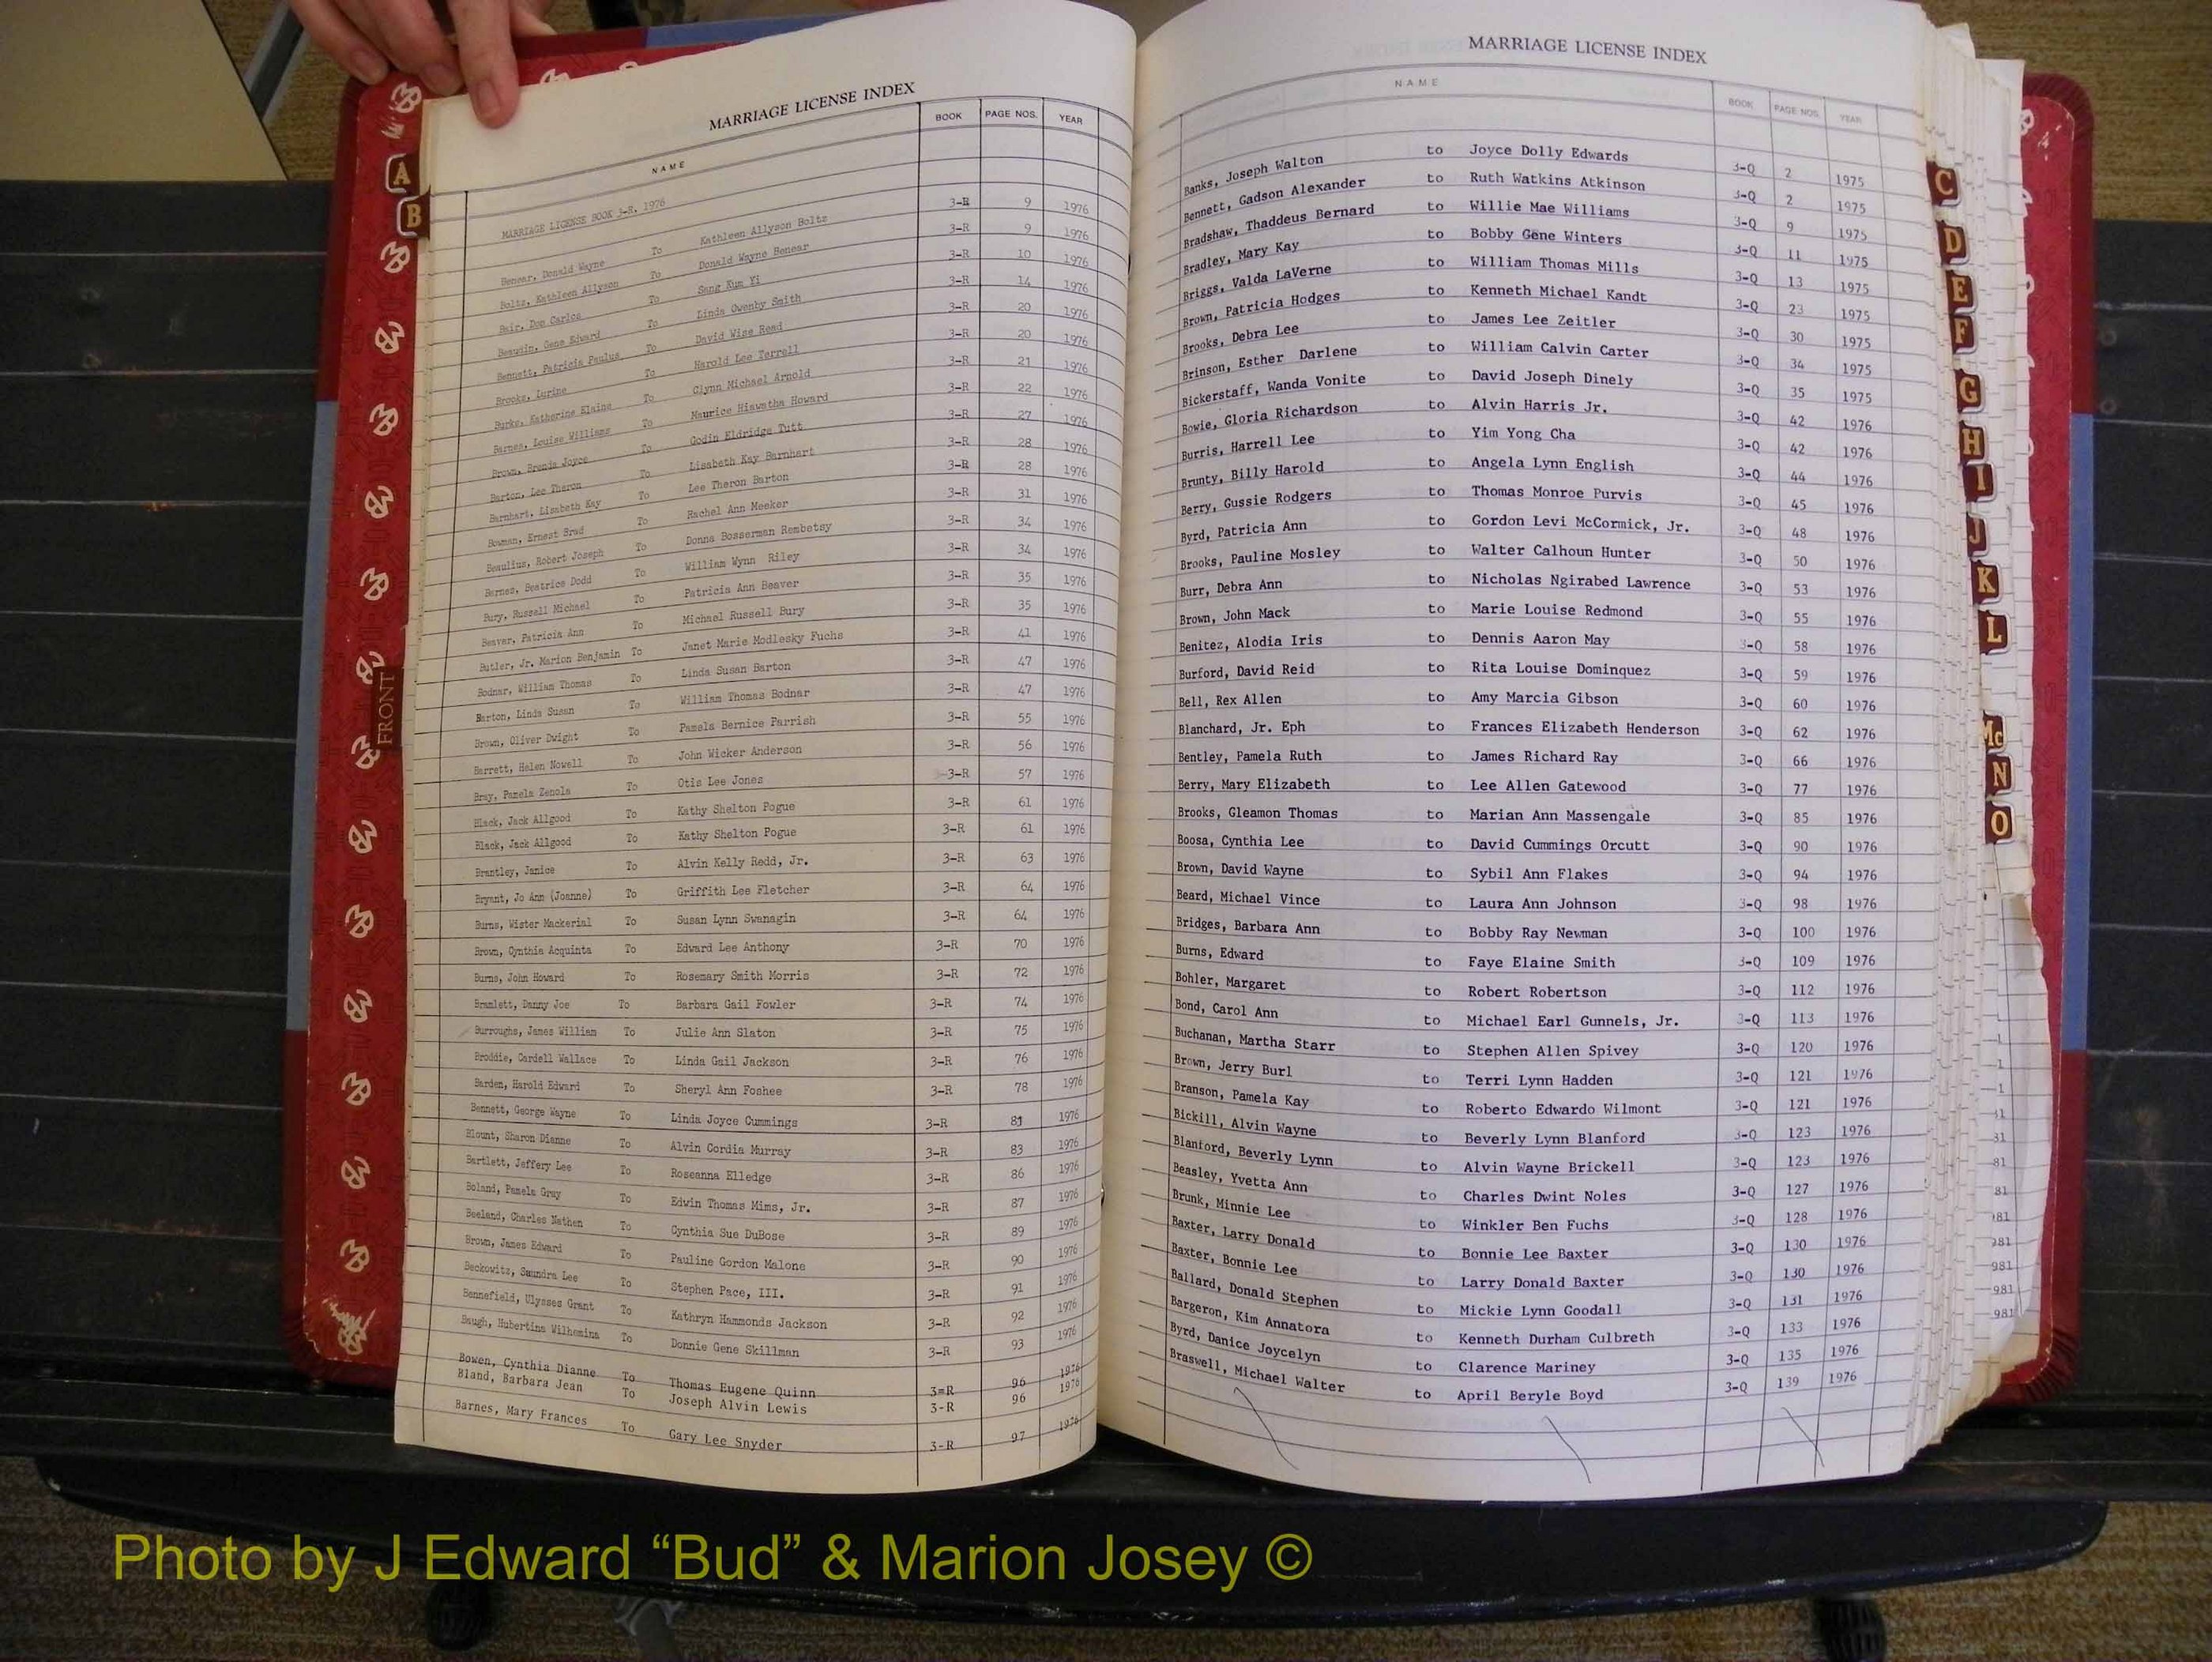 MARRIAGE LICENSE INDEX
NAME BOOK PAGE NOS. YEAR
MARRIAGE LICENSE BOOK 3-R, 1976
Benear, Donald Wayne To Kathleen Allyson Boltz 3-R 9 1976
Boltz, Kathleen Allyson To Donald Wayne Benear 3-R 9 1976
Bair, Don Carlos To Sang Kum Yi 3-R 10 1976
Beaudin, Gene Edward To Linda Owenby Smith 3-R 14 1976
Bennett, Patricia Paulus To David Wise Read 3-R 20 1976
Brooks, Lurine To Harold Lee Terrell 3-R 20 1976
Burks, Katherine Elaine To Glynn Michael Arnold 3-R 21 1976
Barnes, Louise Williams To Maurice Hiawatha Howard 3-R 22 1976
Brown, Brenda Joyce To Godin Eldridge Tutt 3-R 27 1976
Barton, Lee Theron To Lisabeth Kay Barnhart 3-R 28 1976
Barnhart, Lisabeth Kay To Lee Theron Barton 3-R 28 1976
Bowman, Ernest Brad To Rachel Ann Meeker 3-R 31 1976
Beaulius, Robert Joseph To Donna Bosserman Rembetsy 3-R 34 1976
Barnes, Beatrice Dodd To William Wynn Riley 3-R 34 1976
Bury, Russell Michael To Patricia Ann Beaver 3-R 35 1976
Beaver, Patricia Ann To Michael Russell Bury 3-R 35 1976
Butler, Jr. Marion Benjamin To Janet Marie Modlesky Fuchs 3-R 41 1976
Bodnar, William Thomas To Linda Susan Barton 3-R 47 1976
Barton, Linda Susan To William Thomas Bodnar 3-R 47 1976
Brown, Oliver Dwight To Pamela Bernice Parrish 3-R 55 1976
Barrett, Helen Nowell To John Wicker Anderson 3-R 56 1976
Bray, Pamela Zenola To Otis Lee Jones 3-R 57 1976
Black, Jack Allgood To Kathy Shelton Pogue 3-R 61 1976
Black, Jack Allgood To Kathy Shelton Pogue 3-R 61 1976
Brantley, Janice To Alvin Kelly Redd, Jr. 3-R 63 1976
Bryant, Jo Ann (Joanne) To Griffith Lee Fletcher 3-R 64 1976
Burns, Wister Mackerial To Susan Lynn Swanagin 3-R 64 1976
Brown, Cynthia Acquinta To Edward Lee Anthony 3-R 70 1976
Burns, John Howard To Rosemary Smith Morris 3-R 72 1976
Bramlett, Danny Joe To Barbara Gail Fowler 3-R 74 1976
Burroughs, James William To Julie Ann Slaton 3-R 75 1976
Broddie, Cardell Wallace To Linda Gail Jackson 3-R 76 1976
Barden, Harold Edward To Sheryl Ann Foshee 3-R 78 1976
Bennett, George Wayne To Linda Joyce Cummings 3-R 81 1976
Blount, Sharon Dianne To Alvin Cordia Murray 3-R 83 1976
Bartlett, Jeffery Lee To Roseanna Elledge 3-R 86 1976
Boland, Pamela Gray To Edwin Thomas Mims, Jr. 3-R 87 1976
Beeland, Charles Nathen To Cynthia Sue DuBose 3-R 89 1976
Brown, James Edward To Pauline Gordon Malone 3-R 90 1976
Beckowitz, Saundra Lee To Stephen Pace, III. 3-R 91 1976
Bennefield, Ulysses Grant To Kathryn Hammonds Jackson 3-R 92 1976
Baugh, Hubertina Wilhemina To Donnie Gene Skillman 3-R 93 1976
Bowen, Cynthia Dianne To Thomas Eugene Quinn 3=R 96 1976
Bland, Barbara Jean To Joseph Alvin Lewis 3-R 96 1976
Barnes, Mary Frances To Gary Lee Snyder 3-R 97 1976
MARRIAGE LICENSE INDEX
NAME BOOK PAGE NOS. YEAR
Banks, Joseph Walton to Joyce Dolly Edwards 3-Q 2 1975
Bennett, Gadson Alexander to Ruth Watkins Atkinson 3-Q 2 1975
Bradshaw, Thaddeus Bernard to Willie Mae Williams 3-Q 9 1975
Bradley, Mary Kay to Bobby Gene Winters 3-Q 11 1975
Briggs, Valda LaVerne to William Thomas Mills 3-Q 13 1975
Brown, Patricia Hodges to Kenneth Michael Kandt 3-Q 23 1975
Brooks, Debra Lee to James Lee Zeitler 3-Q 30 1975
Brinson, Esther Darlene to William Calvin Carter 3-Q 34 1975
Bickerstaff, Wanda Vonite to David Joseph Dinely 3-Q 35 1975
Bowie, Gloria Richardson to Alvin Harris Jr. 3-Q 42 1976
Burris, Harrell Lee to Yim Yong Cha 3-Q 42 1976
Brunty, Billy Harold to Angela Lynn English 3-Q 44 1976
Berry, Gussie Rodgers to Thomas Monroe Purvis 3-Q 45 1976
Byrd, Patricia Ann to Gordon Levi McCormick, Jr. 3-Q 48 1976
Brooks, Pauline Mosley to Walter Calhoun Hunter 3-Q 50 1976
Burr, Debra Ann to Nicholas Ngirabed Lawrence 3-Q 53 1976
Brown, John Mack to Marie Louise Redmond 3-Q 55 1976
Benitez, Alodia Iris to Dennis Aaron May 3-Q 58 1976
Burford, David Reid to Rita Louise Dominquez 3-Q 59 1976
Bell, Rex Allen to Amy Marcia Gibson 3-Q 60 1976
Blanchard, Jr. Eph to Frances Elizabeth Henderson 3-Q 62 1976
Bentley, Pamela Ruth to James Richard Ray 3-Q 66 1976
Berry, Mary Elizabeth to Lee Allen Gatewood 3-Q 77 1976
Brooks, Gleamon Thomas to Marian Ann Massengale 3-Q 85 1976
Boosa, Cynthia Lee to David Cummings Orcutt 3-Q 90 1976
Brown, David Wayne to Sybil Ann Flakes 3-Q 94 1976
Beard, Michael Vince to Laura Ann Johnson 3-Q 98 1976
Bridges, Barbara Ann to Bobby Ray Newman 3-Q 100 1976
Burns, Edward to Faye Elaine Smith 3-Q 109 1976
Bohler, Margaret to Robert Robertson 3-Q 112 1976
Bond, Carol Ann to Michael Earl Gunnels, Jr. 3-Q 113 1976
Buchanan, Martha Starr to Stephen Allen Spivey 3-Q 120 1976
Brown, Jerry Burl to Terri Lynn Hadden 3-Q 121 1976
Branson, Pamela Kay to Roberto Edwardo Wilmont 3-Q 121 1976
Bickill, Alvin Wayne to Beverly Lynn Blanford 3-Q 123 1976
Blanford, Beverly Lynn to Alvin Wayne Brickell 3-Q 123 1976
Beasley, Yvetta Ann to Charles Dwint Noles 3-Q 127 1976
Brunk, Minnie Lee to Winkler Ben Fuchs 3-Q 128 1976
Baxter, Larry Donald to Bonnie Lee Baxter 3-Q 130 1976
Baxter, Bonnie Lee to Larry Donald Baxter 3-Q 130 1976
Ballard, Donald Stephen to Mickie Lynn Goodall 3-Q 131 1976
Bargeron, Kim Annatora to Kenneth Durham Culbreth 3-Q 133 1976
Byrd, Danice Joycelyn to Clarence Mariney 3-Q 135 1976
Braswell, Michael Walter to April Beryle Boyd 3-Q 139 1976
A
B
FRONT
C
D
E
F
G
H
I
J
K
L
Mc
N
O
Photo by J Edward “Bud” & Marion Josey ©